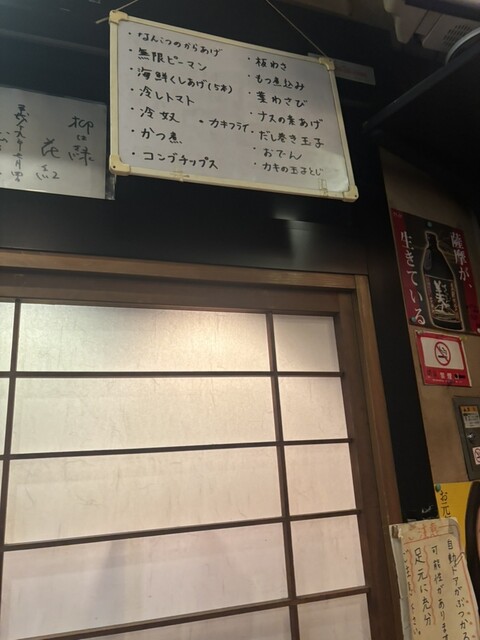 ・なんこつのからあげ
・無限ピーマン
・海鮮くしあげ(5本)
・冷しトマト
・冷奴
・かつ煮
・コンブチップス
・カキフライ
・板わさ
・もつ煮込み
・茎わさび
・ナスの素あげ
・だし巻き玉子
・おでん
・カキの玉子とじ
柳は緑
花は紅
薩摩が、
生きている
お元
自動ドアがぶつかる
可能性があります
足元に充分